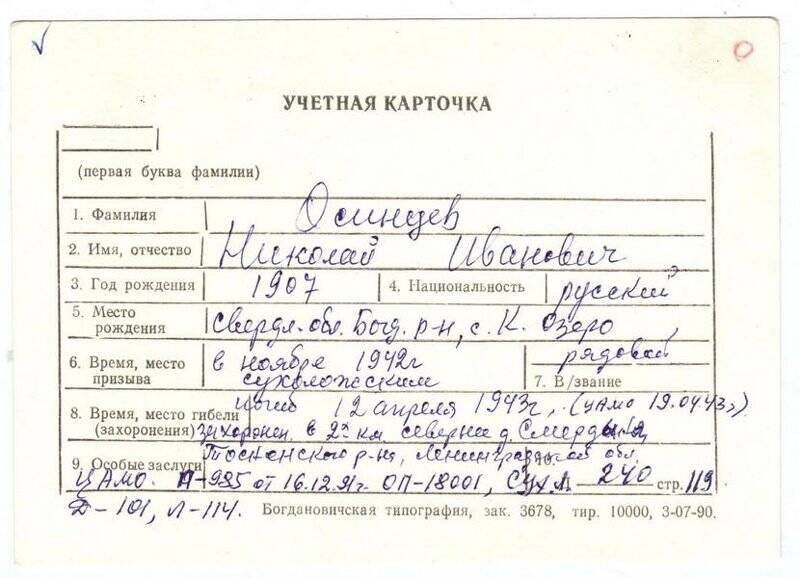 УЧЕТНАЯ КАРТОЧКА
(первая буква фамилии)
1. Фамилия Осинцев
2. Имя, отчество Николай Иванович
3. Год рождения 1907 4. Национальность русский
5. Место рождения Свердл. обл. Богд. р-н, с. К. Озеро
6. Время, место призыва в ноябре 1942г сухоложским 7. В/звание рядовой
8. Время, место гибели (захоронения) погиб 12 апреля 1943г. (ЦАМО 19.04.43г.)
захоронен в 2х км. севернее д. Смердыня
Тосненского р-на, Ленинградской обл.
9. Особые заслуги 10.
ЦАМО. А-985 от 16.12.91г ОП-18001, Сух. Л 240 стр. 119
Д-101, Л-114. Богдановичская типография, зак. 3678, тир. 10000, 3-07-90.